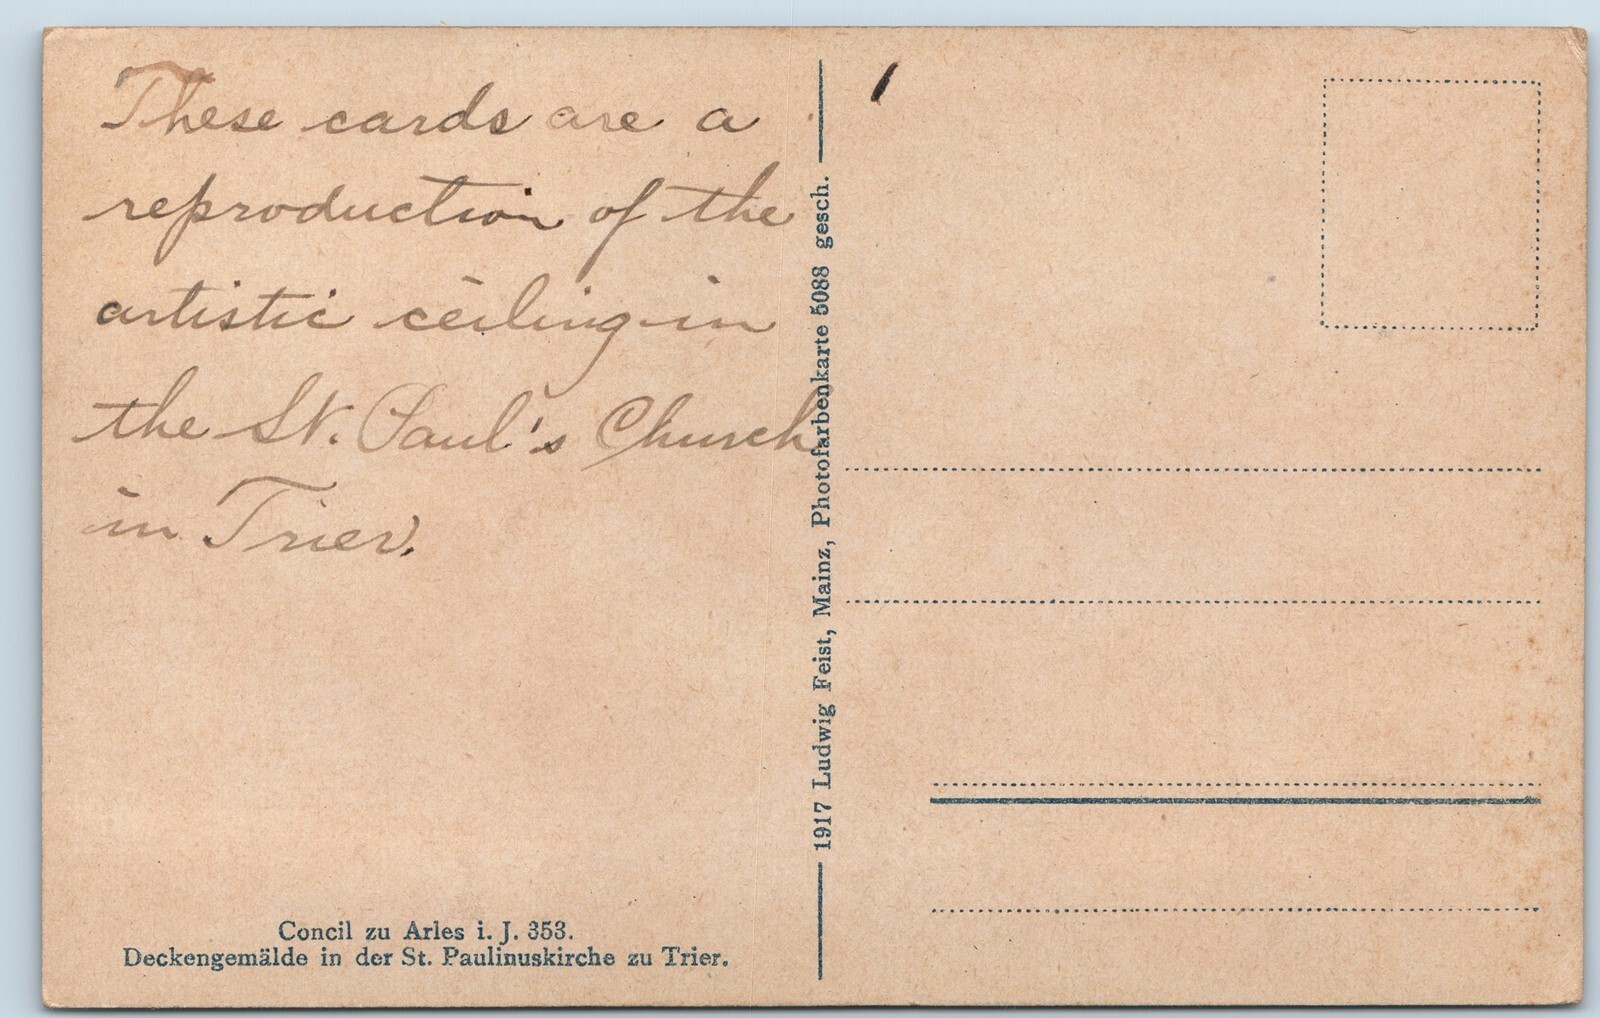 These cards are a
reproduction of the
artistic ceiling in
the St. Paul's Church
in Trier.
Concil zu Arles i. J. 353.
Deckengemälde in der St. Paulinuskirche zu Trier.
1917 Ludwig Feist, Mainz, Photofarbenkarte 5088 gesch.